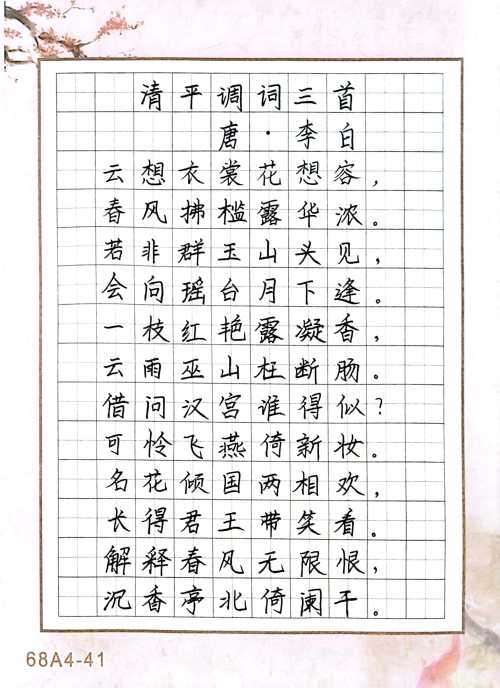 清平调词三首
唐·李白
云想衣裳花想容，
春风拂槛露华浓。
若非群玉山头见，
会向瑶台月下逢。
一枝红艳露凝香，
云雨巫山枉断肠。
借问汉宫谁得似？
可怜飞燕倚新妆。
名花倾国两相欢，
长得君王带笑看。
解释春风无限恨，
沉香亭北倚阑干。
68A4-41